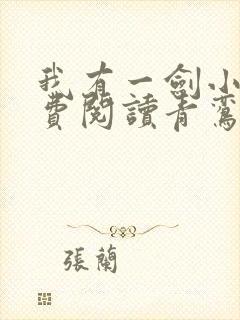 我有一劍小
費閱讀青鸞
張蘭